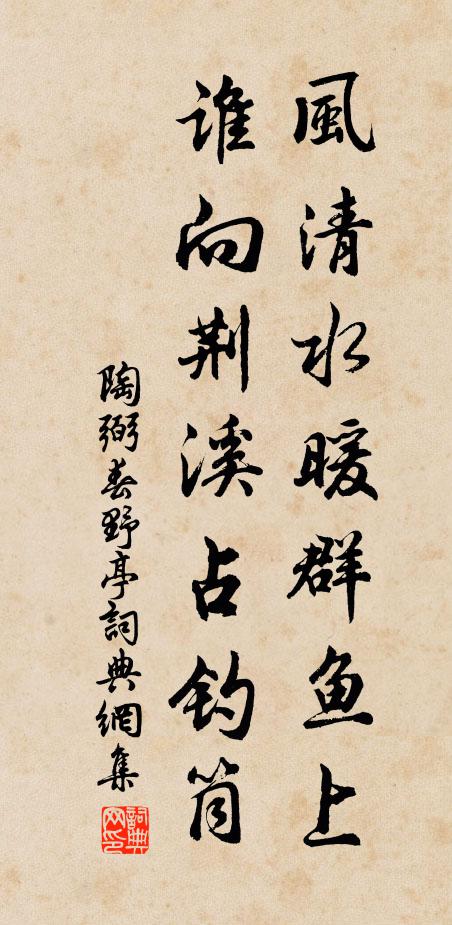 風清水暖群鱼上
谁向荆溪占钓筒
陶弼春野亭詞典網集
詞典网印